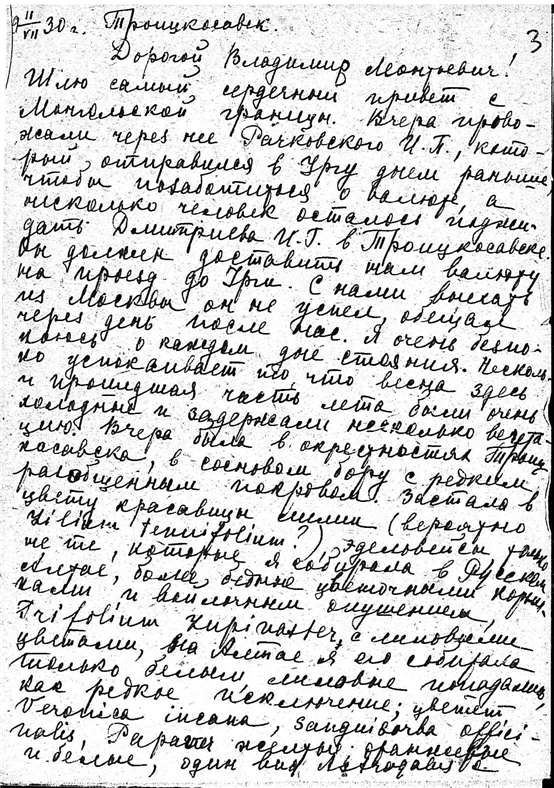 9 II/VII 30 г. Троицкосавск.
3
Дорогой Владимир Леонтьевич!
Шлю самый сердечный привет с
Монгольской границы. Вчера прово-
жали через нее Рачковского И.П., кото-
рый отправился в Ургу днем раньше
чтобы позаботиться о валюте, а
несколько человек осталось поджи-
дать Дмитриева И.Г. в Троицкосавске.
он должен доставить нам валюту
на проезд до Урги. С нами выехать
из Москвы он не успел, обещал
через день после нас. Я очень беспо-
коюсь о каждом дне стояния. Несколь-
ко успокаивает то, что весна здесь
и прошедшая часть лета были очень
холодные и задержали несколько вегета-
цию. Вчера была в окрестностях Троиц-
косавска, в сосновом бору с редким
разобщенным покровом. Застала в
цвету красавицы лилии (вероятно
Lilium tenuifolium?), эдельвейсы только
не те, которые я собирала в Русском
Алтае, более бедные цветочными корзин-
ками и войлочным опушением,
Trifolium Lupinaster с лиловыми
цветами, на Алтае я его собирала
только белым, лиловые попадались,
как редкое исключение; цветет
Veronica incana, Sanguisorba offici-
nalis, Papaver желтые оранжевые
и белые, один вид